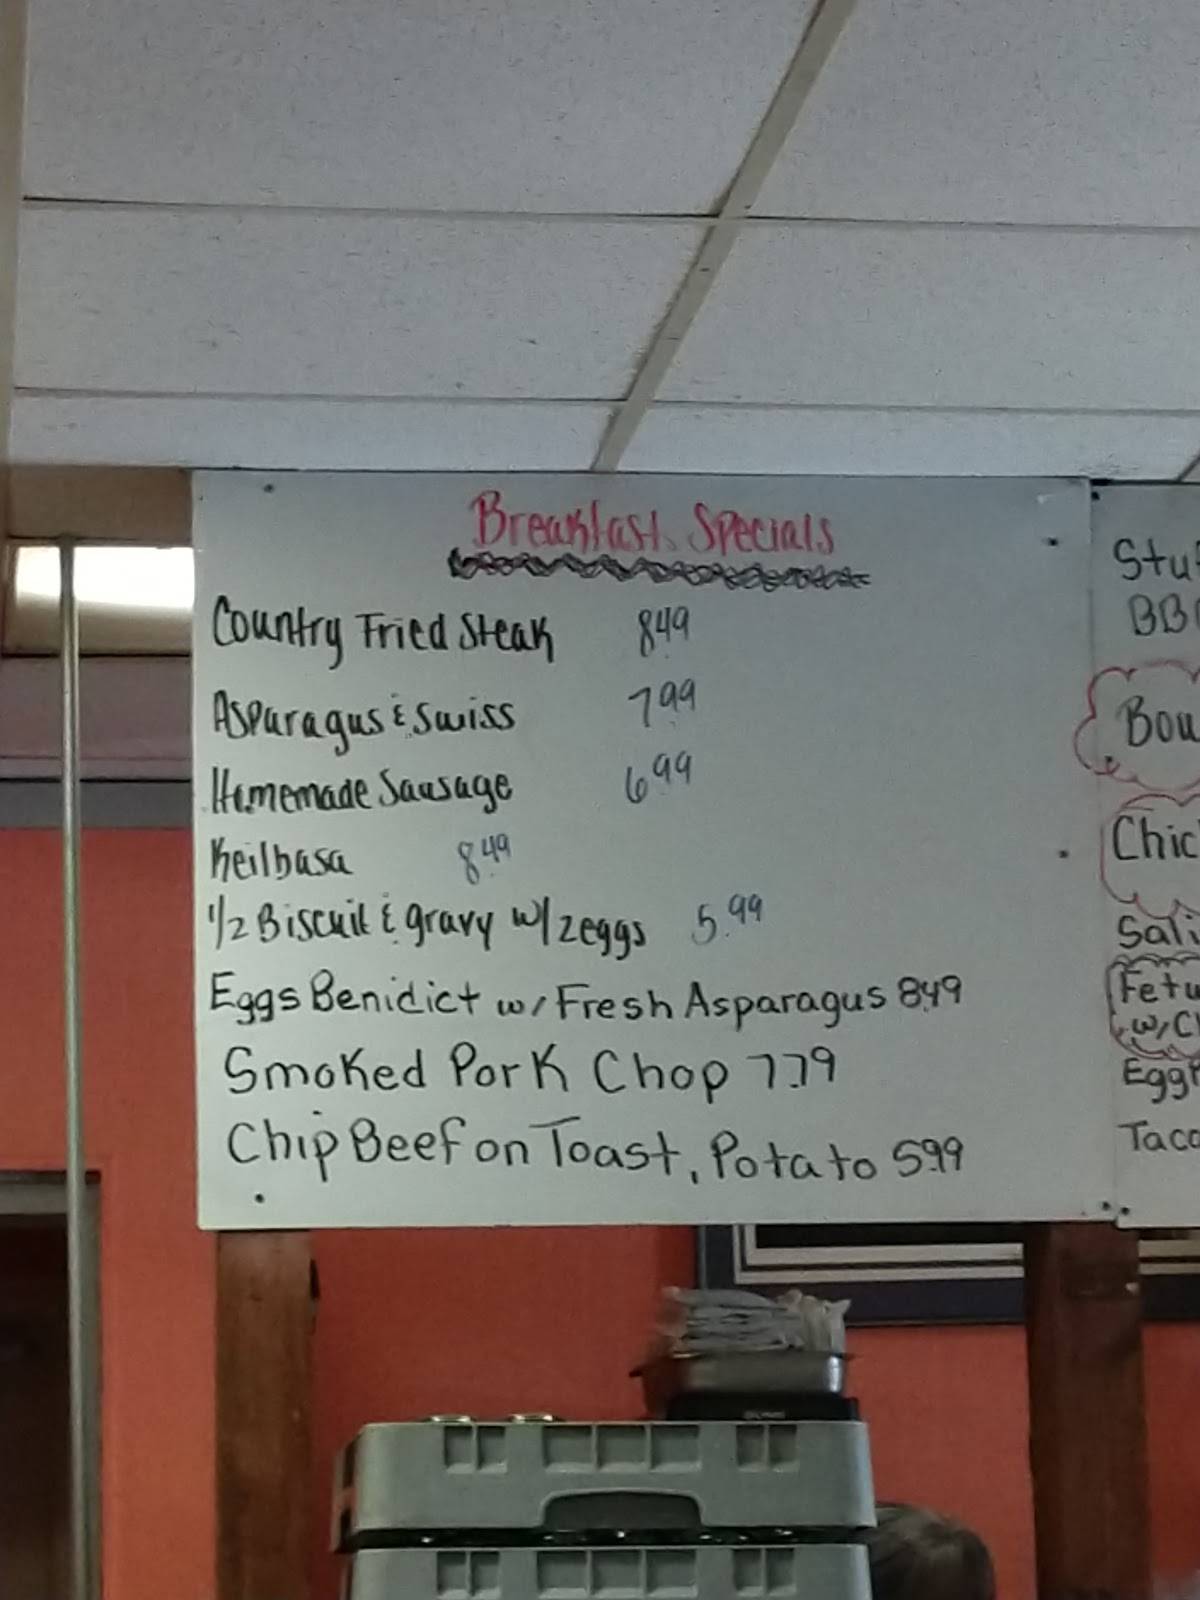 Breakfast Specials
Country Fried Steak 8.49
Asparagus & Swiss 7.99
Homemade Sausage 6.99
Keilbasa 8.49
1/2 Biscuit & gravy w/ 2 eggs 5.99
Eggs Benidict w/ Fresh Asparagus 8.49
Smoked Pork Chop 7.79
Chip Beef on Toast, Potato 5.99
Stu
BB
Bou
Chic
Sal
Fetu
w/ C
Egg
Tac